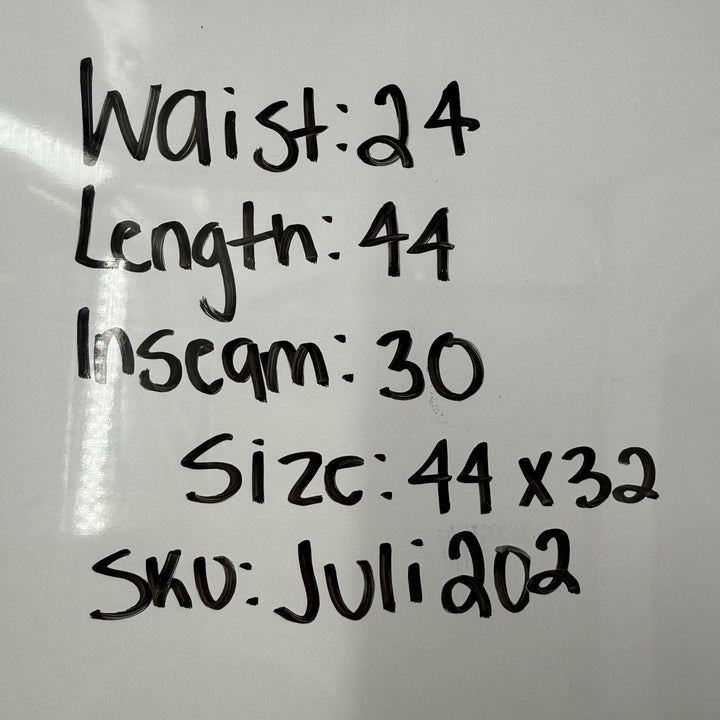 Waist: 24
Length: 44
Inseam: 30
Size: 44 x 32
SKU: Juli202